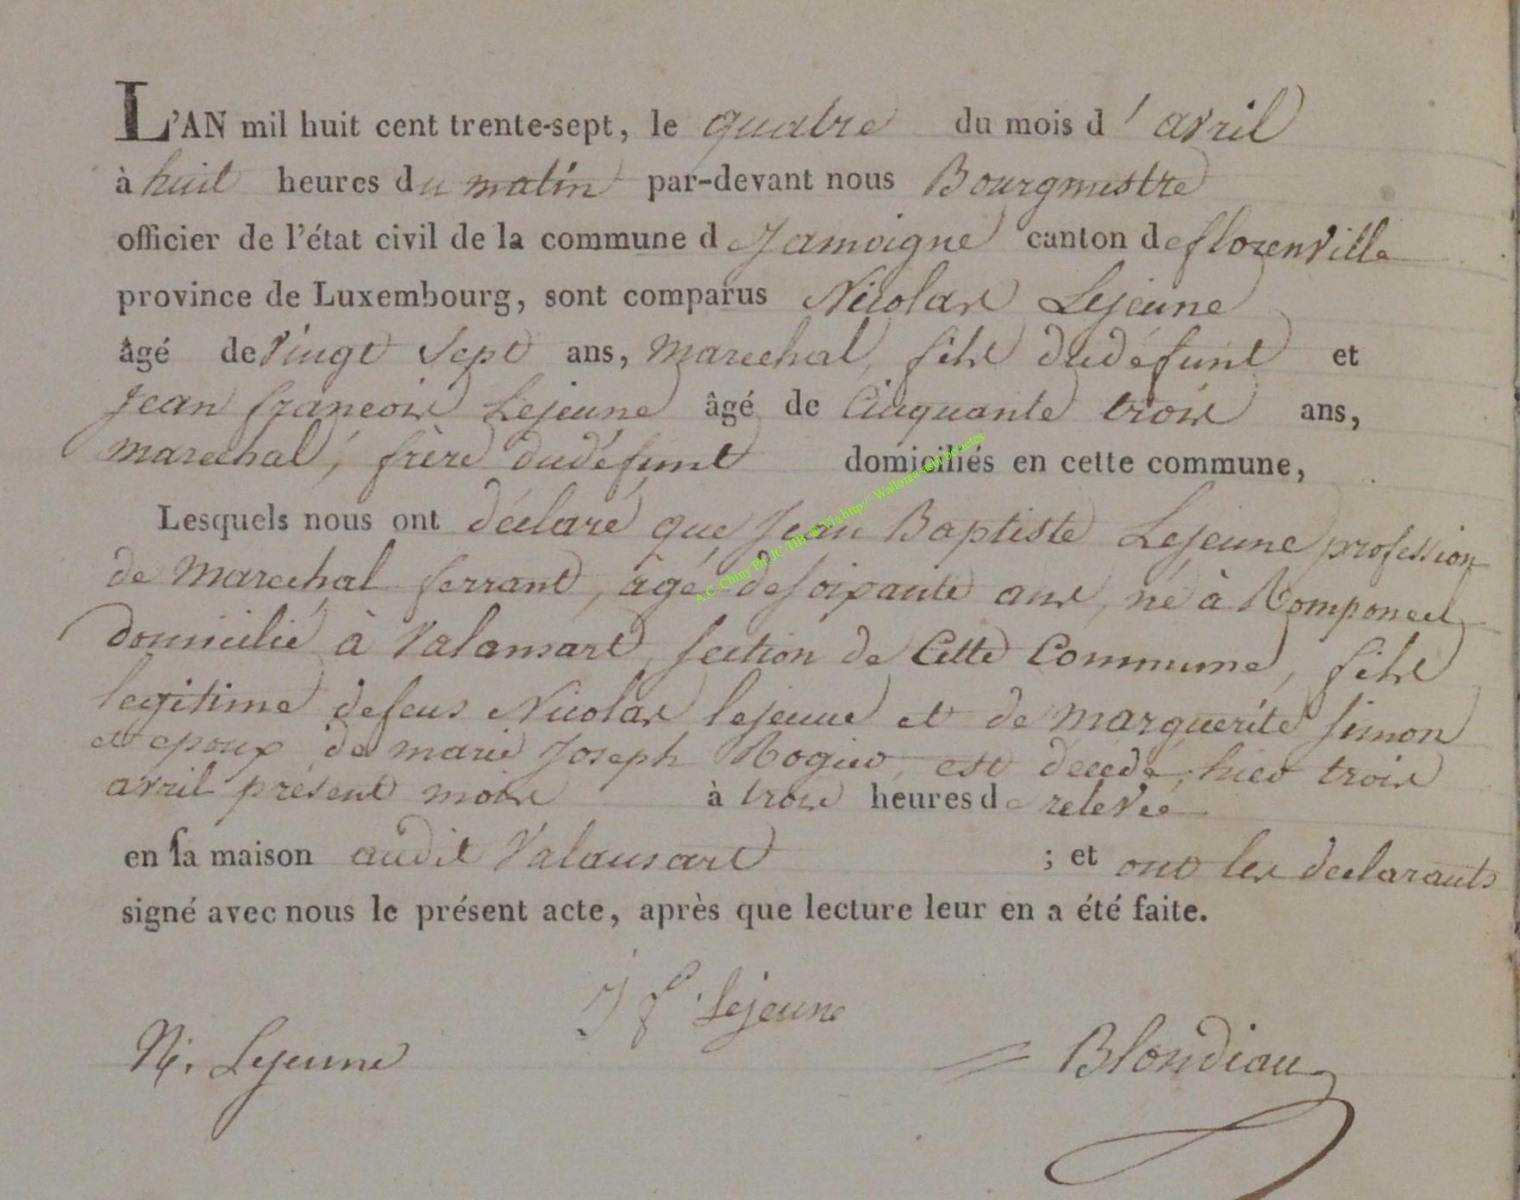 L'AN mil huit cent trente-sept, le quatre du mois d'avril
à huit heures du matin par-devant nous Bourgmestre
officier de l'état civil de la commune d Jamoigne canton de florenville
province de Luxembourg, sont comparus Nicolas Lejeune
âgé de vingt sept ans, marechal, fils du défunt et
Jean françois Lejeune âgé de Cinquante trois ans,
marechal, frère du défunt domiciliés en cette commune,
Lesquels nous ont déclaré que Jean Baptiste Lejeune profession
de marechal ferrant, âgé de soixante ans, né à Romponcel
domicilié à Valansart, section de Cette Commune, fils
legitime defeus Nicolas lejeune et de marguerite simon
et epoux de marie Joseph Rogier, est décédé, hier trois
avril présent mois à trois heures de relevée
en sa maison audit Valansart ; et ont les declarants
signé avec nous le présent acte, après que lecture leur en a été faite.
J f Lejeune
N. Lejeune
Blondiau